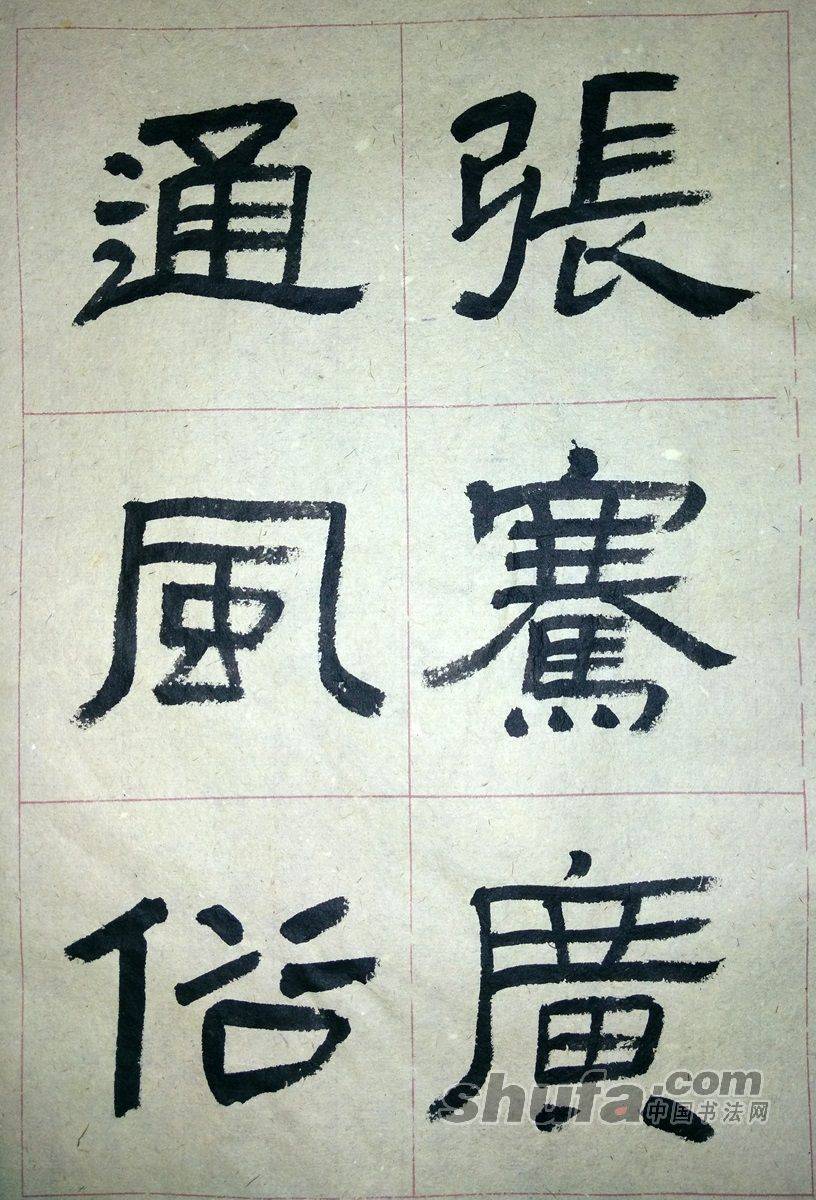 張騫廣
通風俗
shufa.com
中国书法网